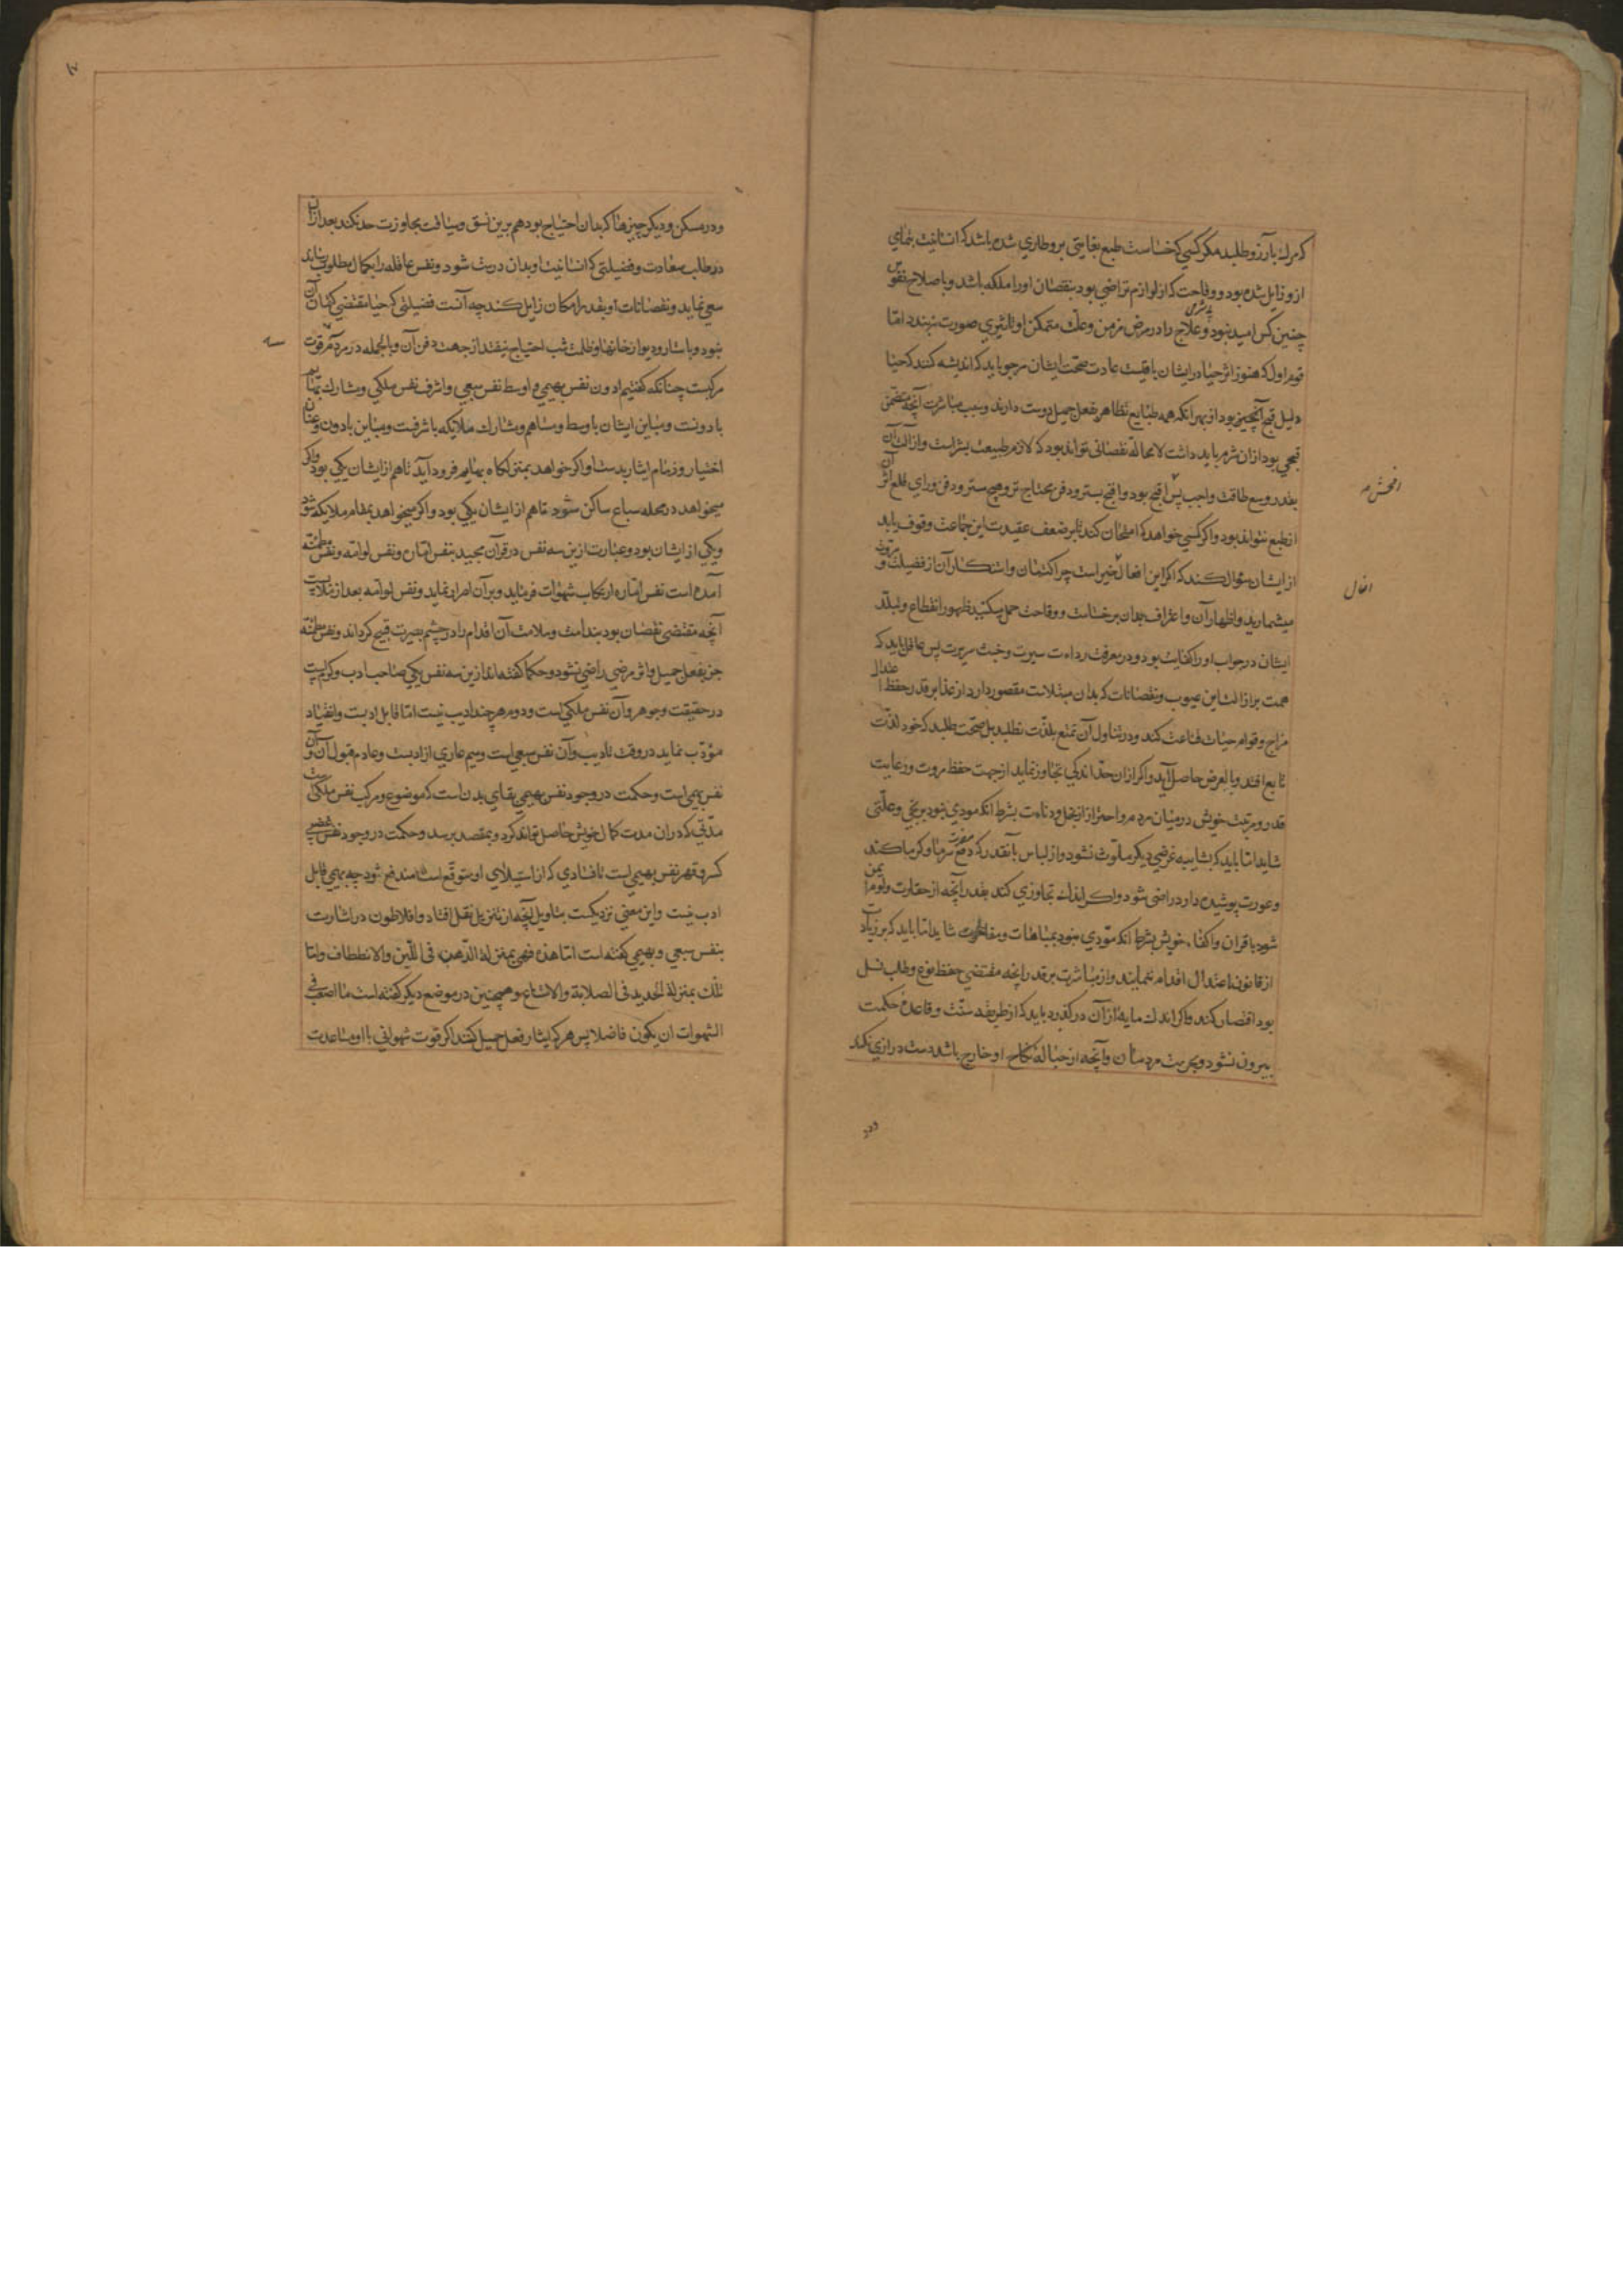 که مرگ بآرزو طلبد مکر کسی که خساست طبع بغایتی برو طاری شده باشد که انسانیت بتمامی
ازو زایل شده بود و وقاحت که از لوازم تراضی بود بنقصان او را ملکه باشد و باصلاح نفوس
چنین کس امید نبود و علاج را در مرض مزمن و علت متمکن او تاثیری صورت نبندد اما
قوم اول که هنوز اثر حیا در ایشان باقیست عادت صحت ایشان مرجو باید که اندیشه کنند که حیا
دلیل قبح آنچیز بود از بهر آنکه همه طبایع تظاهر بفعل جمیل دوست دارند و سبب مباشرت آنچه متضمن
قبحی بود ازان شرم باید داشت لا محاله نقصانی تواند بود که لازم طبیعت بشر است و ازالت آن
بقدر وسع طاقت واجب پس اقبح بود و اقبح بستر و دفن محتاج‌تر و هیچ ستر و دفن ورای قلع اثر آن
از طبع نتواند بود و اکر کسی خواهد که امتحان کند تا بر ضعف عقیدت این جماعت وقوف یابد
از ایشان سؤال کند که اکر این افعال خیر است چرا کتمان و استنکار آن از فضیلت و مروت
میشمارید و اظهار آن و اعتراف بدان بر خساست و وقاحت حمل میکنید ظهور انقطاع و تبلد
ایشان در جواب او را کفایت بود و در معرفت رداءت سیرت و خبث سریرت پس عاقل باید که
همت بر ازالت این عیوب و نقصانات که بدان مبتلاست مقصور دارد از غذا بر قدر حفظ اعتدال
مزاج و قوام حیات قناعت کند و در تناول آن تمتع بلذت نطلبد بل صحت طلبد که خود لذت
تابع افتد و بالعرض حاصل آید و اکر ازان حد اندکی تجاوز نماید از جهت حفظ مروت و رعایت
قدر و مرتبت خویش در میان مردم و احتراز از بخل و دناءت بشرط انکه مودی نبود برنجی و علتی
شاید اما باید که بشایبه غرضی دیکر ملوث نشود و از لباس بآنقدر که دفع مضرت سرما و کرما کند
و عورت پوشیده دارد راضی شود و اکر اندک تجاوزی کند بقدر آنچه از حقارت و لوم ایمن
شود با قران و اکفاء خویش بشرط انکه مؤدی نبود بمباهات و مفاخرت شاید اما باید که بر زیادت
از قانون اعتدال اقدام ننمایند و از مباشرت بر قدر آنچه مقتضی حفظ نوع و طلب نسل
بود اقتصار کند و اکر اندک مایه از آن درکذرد باید که از طریقه سنت و قاعده حکمت
بیرون نشود و بحرمت مردمان و آنچه از حباله نکاح او خارج باشد دست درازی نکند
ودر
افعال
و در مسکن و دیکر چیزها که بدان احتیاج بود هم برین نسق و میافت مجاوزت حد نکند بعد ازان
در طلب سعادت و فضیلتی که انسانیت او بدان درست شود و نفس عاقله را بکمال مطلوب رساند
سعی نماید و نقصانات او بقدر امکان زایل کند چه آنست فضیلتی که حیا مقتضی کتمان آن
نبود و باستار و دیوار خانها و ظلمت شب احتیاج نیفتد از جهت دفن آن و بالجمله در مردم سه قوت
مرکبست چنانکه کفتیم ادون نفس بهیمی و اوسط نفس سبعی و اشرف نفس ملکی و مشارک بهایم
بادونست و مباین ایشان باوسط و مساهم و مشارک ملایکه باشرفست و مباین بادون و عنان
اختیار و زمام ایثار بدست او اکر خواهد بمنزلکاه بهایم فرود آید تا هم از ایشان یکی بود و اکر
میخواهد در محله سباع ساکن شود تا هم از ایشان یکی بود و اکر میخواهد بمقام ملایکه شود
و یکی از ایشان بود و عبارت ازین سه نفس در قرآن مجید بنفس اماره و نفس لوامه و نفس مطمئنه
آمده است نفس اماره ارتکاب شهوات فرماید و بر آن اصرار نماید و نفس لوامه بعد از ملابست
آنچه مقتضی نقصان بود بندامت و ملامت آن اقدام را در چشم بصیرت قبیح کرداند و نفس مطمئنه
جز بفعل جمیل و اثر مرضی راضی نشود و حکما کفته‌اند ازین سه نفس یکی صاحب ادب و کرمست
در حقیقت و جوهر و آن نفس ملکی است و دوم هر چند ادیب نیست اما قابل ادبست و انقیاد
مؤدب نماید در وقت تادیب و آن نفس سبعی است و سیم عاری از ادبست و عادم قبول آن و آن
نفس بهیمی است و حکمت در وجود نفس بهیمی بقای بدنست که موضوع و مرکب نفس ملکی است
مدتی که دران مدت کمال خویش حاصل تواند کرد و بمقصد برسد و حکمت در وجود نفس غضبی
کسر و قهر نفس بهیمی است تا فسادی که از استیلای او متوقع است مندفع شود چه بهیمی قابل
ادب نیست و این معنی نزدیکست بتاویل آنچه از تنزیل نقل افتاد و افلاطون در اشارت
بنفس سبعی و بهیمی کفته است اما هذه فهی بمنزلة الذهب فی اللین والانعطاف واما
تلک بمنزلة الحدید فی الصلابة والامتناع و همچنین در موضع دیکر کفته است ما اصعب فی
الشهوات ان یکون فاضلا پس هر که ایثار فعل جمیل کند اکر قوت شهوانی با او مساعدت